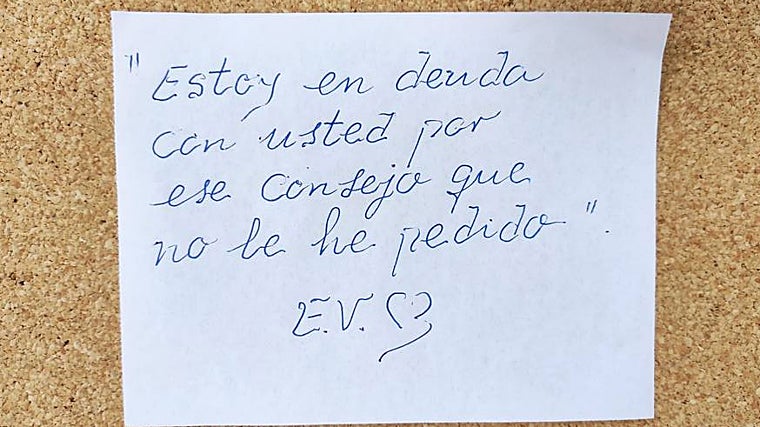 "Estoy en deuda
con usted por
ese consejo que
no le he pedido".
E.V. ♡